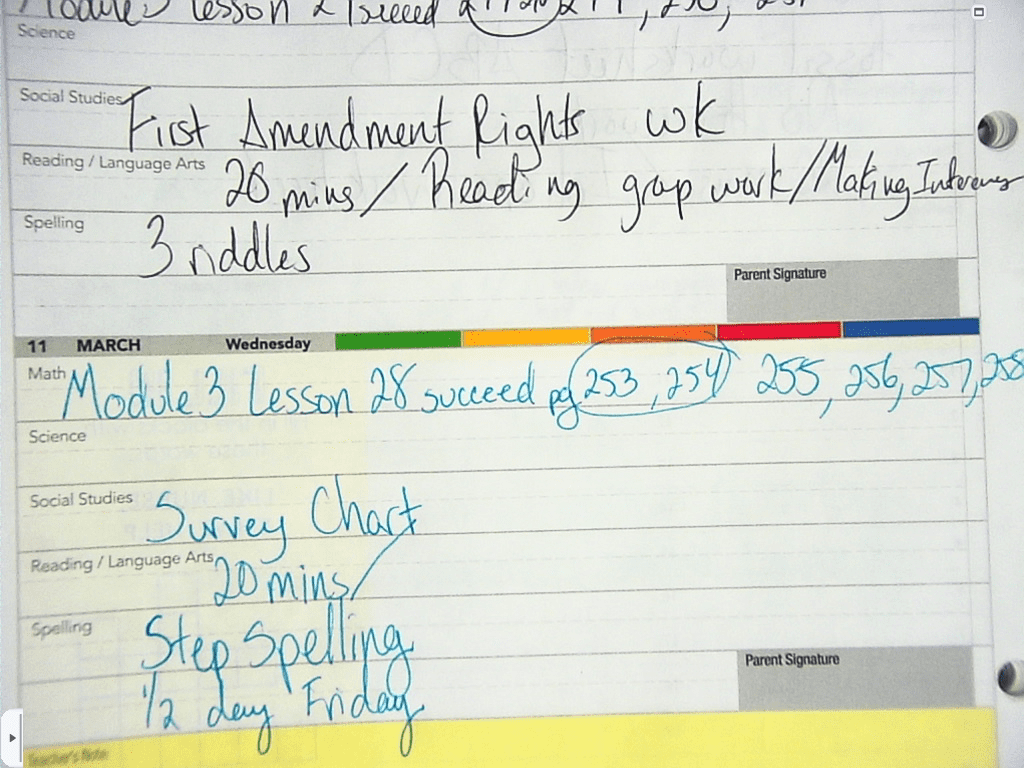 Module 3 Lesson 2 succeed
Science
Social Studies First Amendment Rights wk
Reading / Language Arts 20 mins / Reading group work / Making
Spelling 3 riddles
Parent Signature
11 MARCH Wednesday
Math Module 3 Lesson 28 succeed pg 253, 254 255, 256, 257, 258
Science
Social Studies Survey Chart
Reading / Language Arts 20 mins /
Spelling Step Spelling
1/2 day Friday
Parent Signature
Teacher's Note